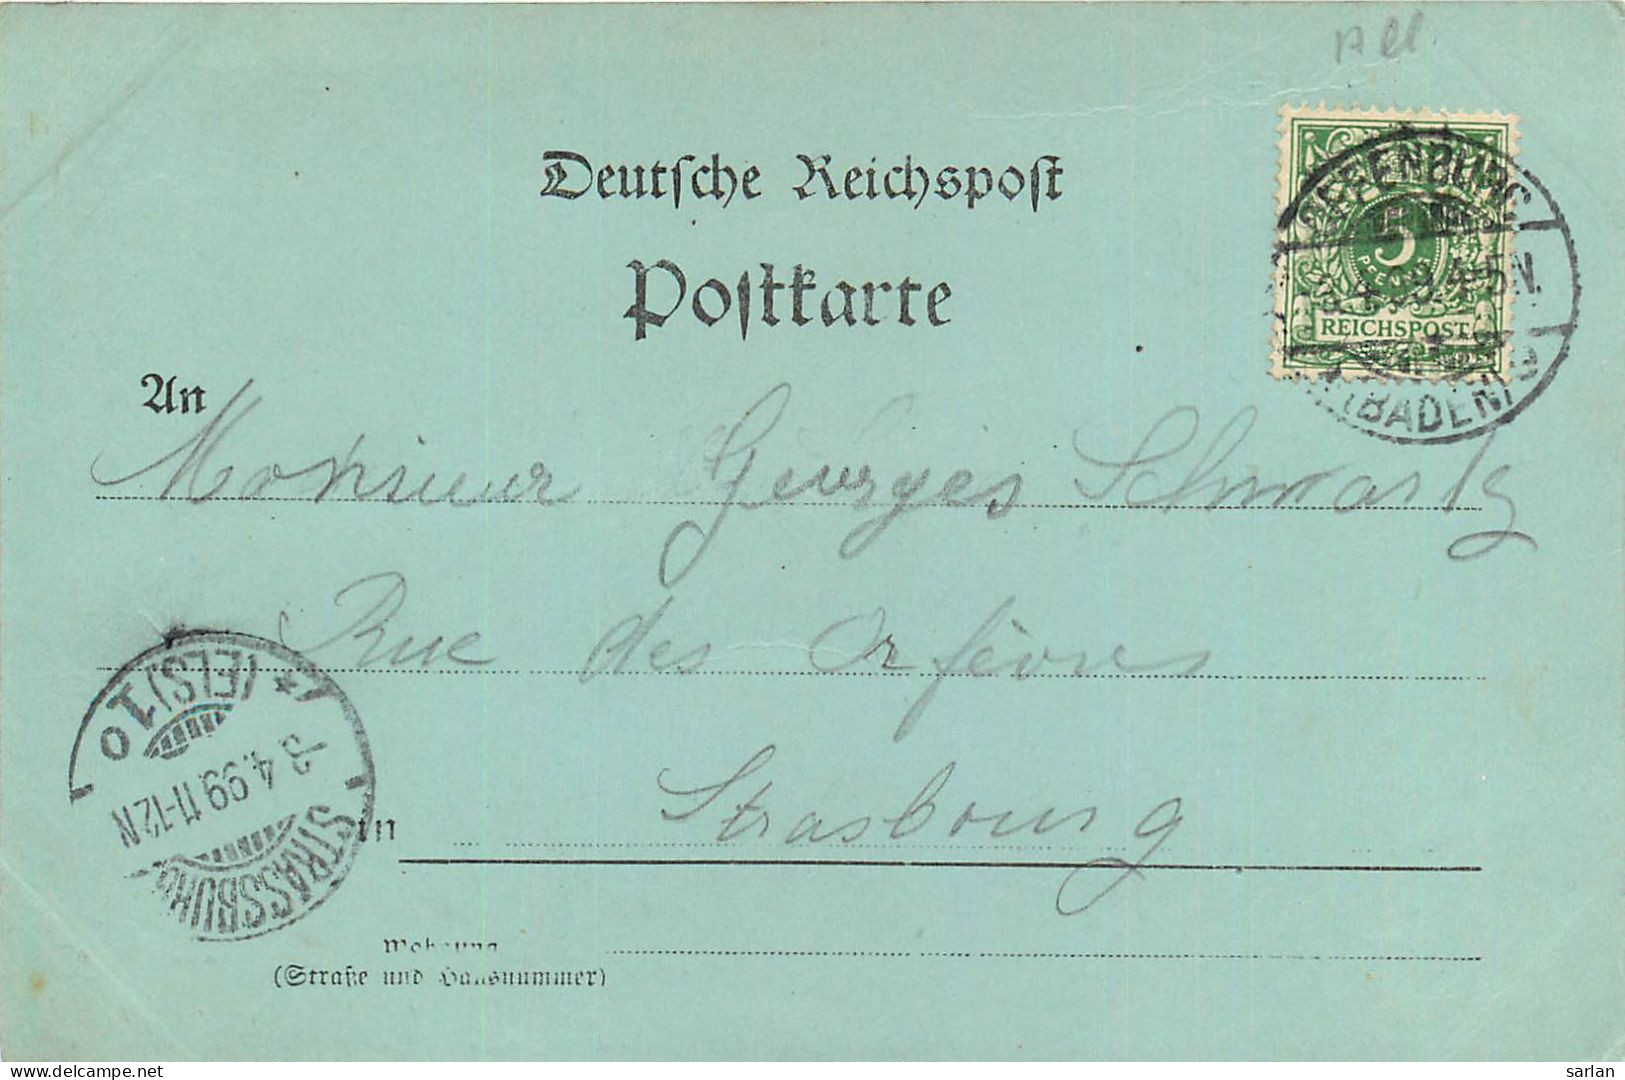 All.
Deutsche Reichspost
Postkarte
OFFENBURG
5
PFENNIG
4-5N.
REICHSPOST
(BADEN)
An
Monsieur Georges Schwartz
Rue des Orfèvres
(ELS) 10
3 4.99.11-12N
STRASSBURG
in Strasbourg
Wohnung
(Straße und Hausnummer)
delcampe.net
sarlan